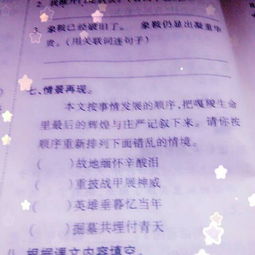 3. 象鞍已经破旧了。 象鞍仍显出凝重华
贵。(用关联词连句子)
七、情景再现。
本文按事情发展的顺序,把嘎羧生命
里最后的辉煌与庄严记叙下来。请你按
顺序重新排列下面错乱的情境。
( )故地缅怀辛酸泪
( )重披战甲展神威
( )英雄垂暮忆当年
( )掘墓共埋付青天
根据课文内容填空。